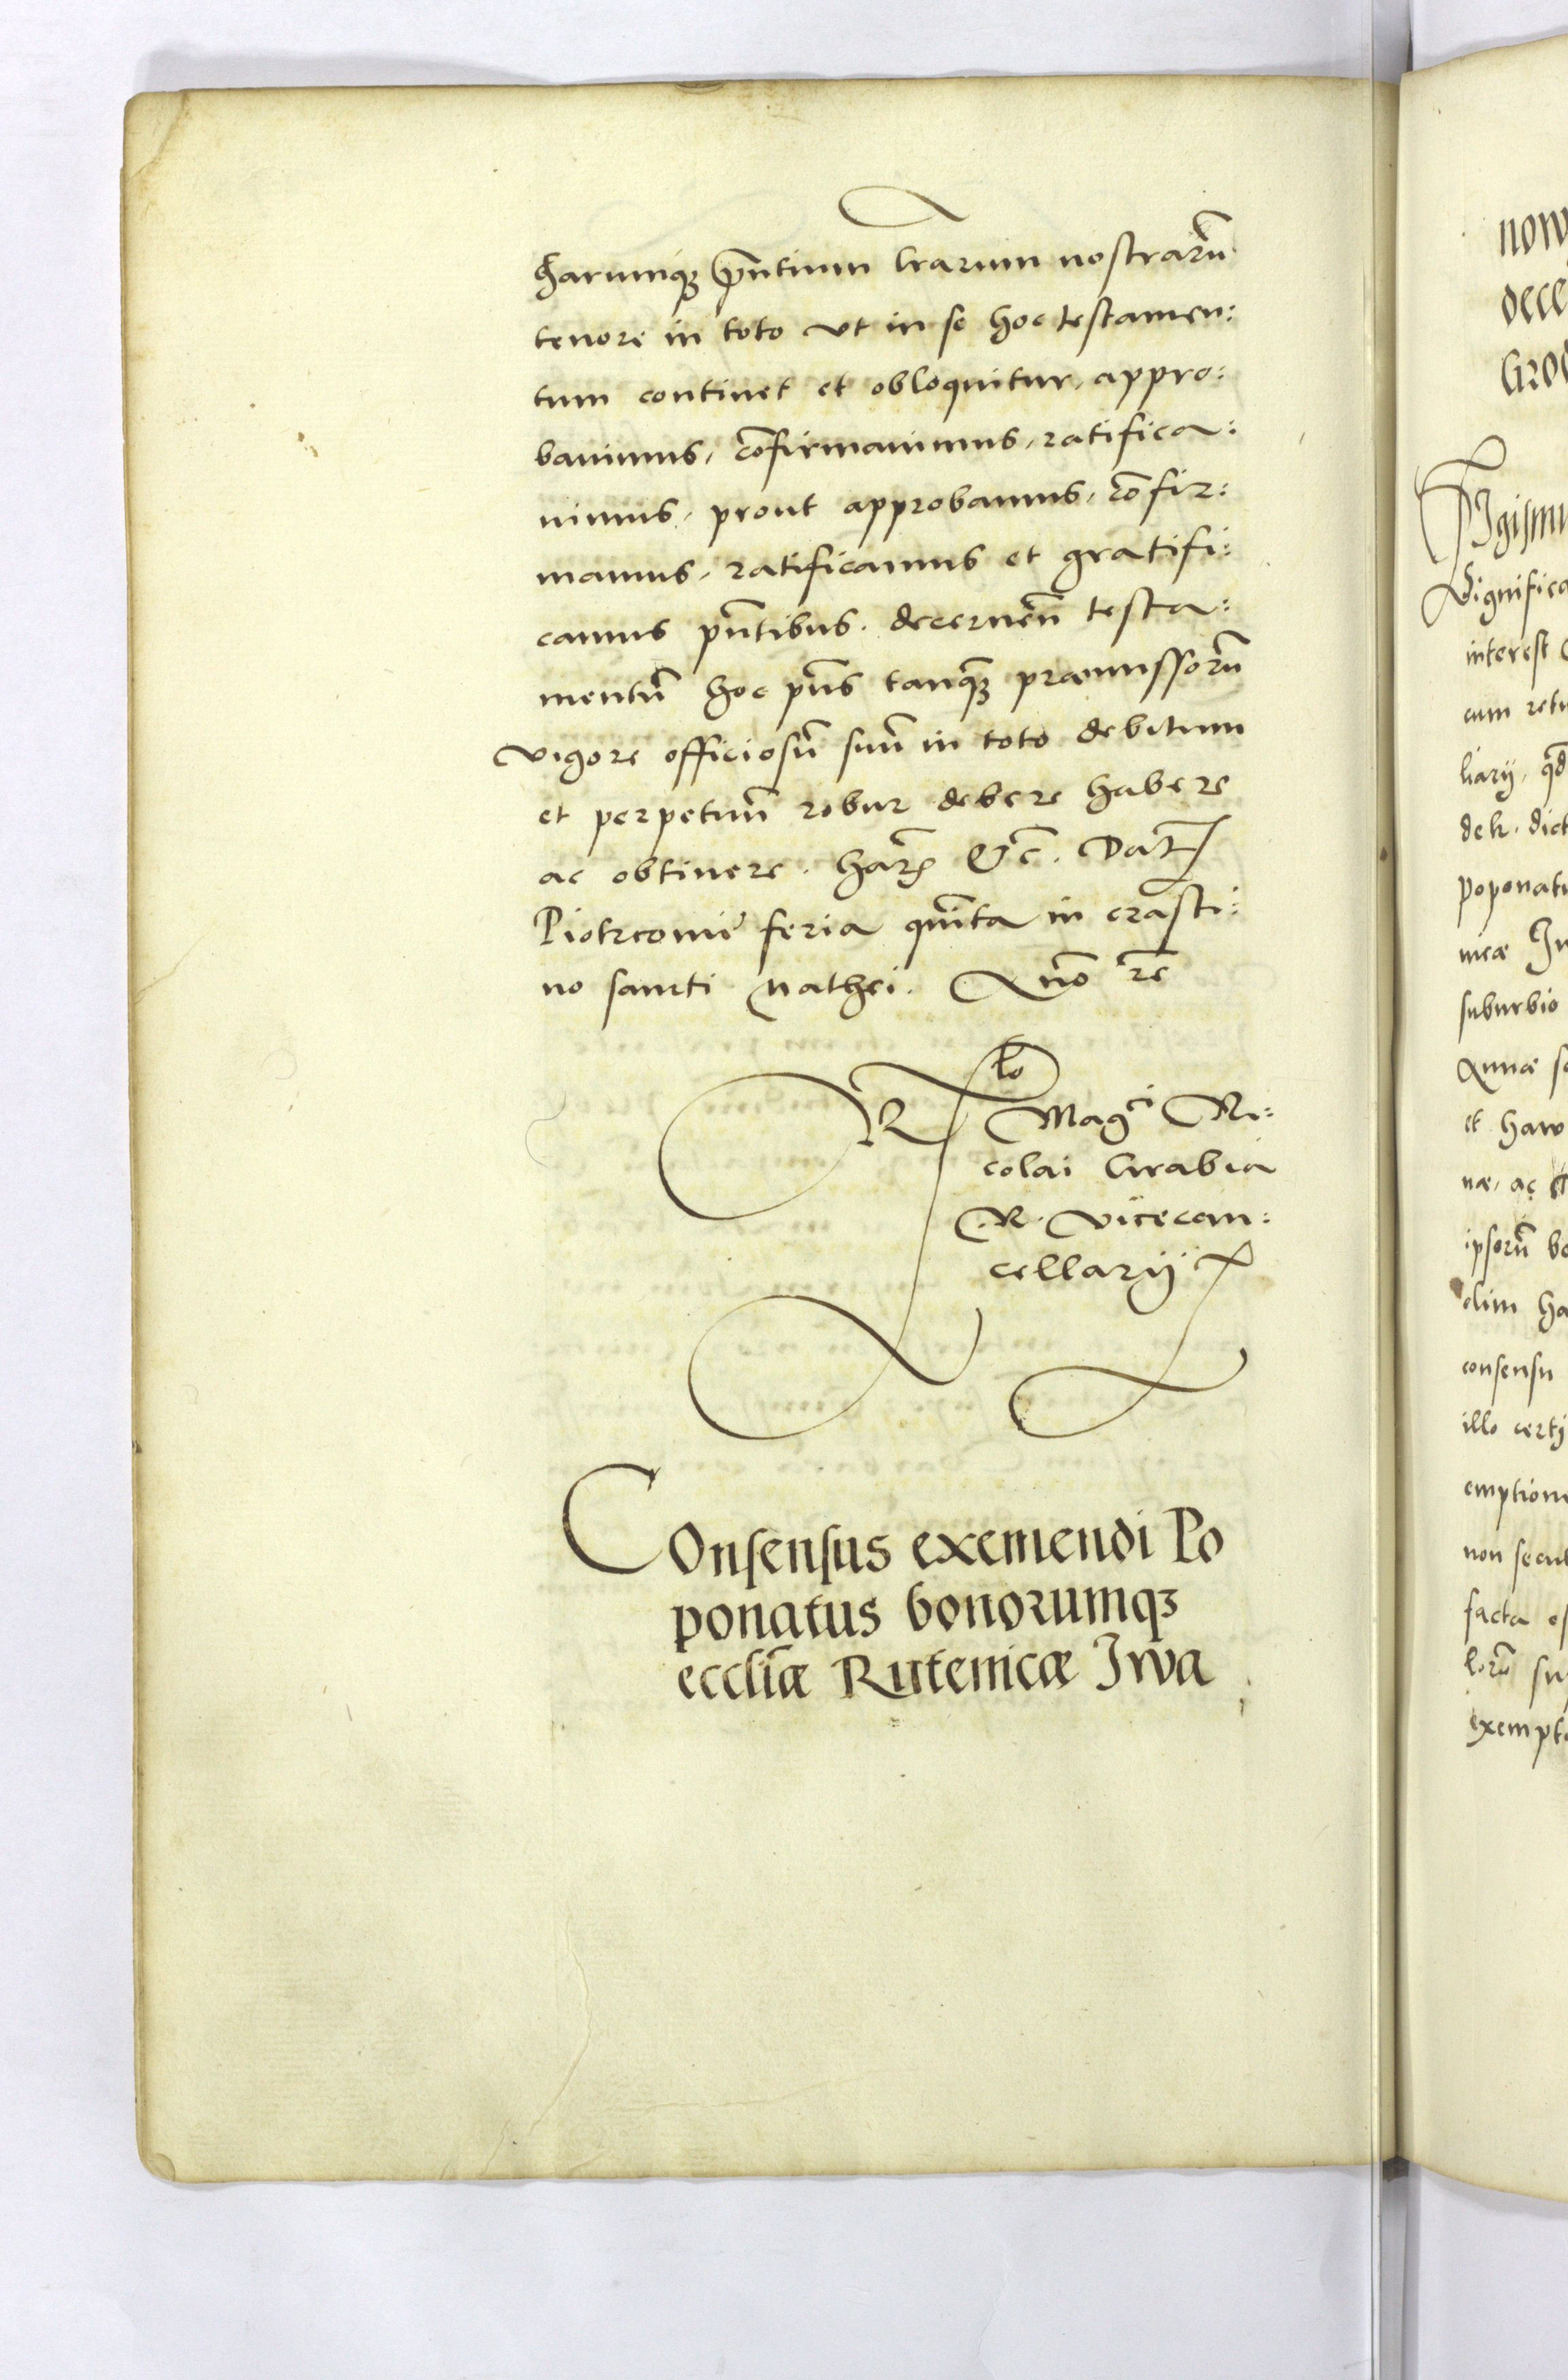 harumq₃ p̃ntium l̃rarum nostrarũ
tenore in toto vt in se hoc testamen:
tum continet et obloquitur, appro:
bauimus, cõfirmauimus, ratifica:
uimus, prout approbamus, cõfir:
mamus, ratificamus et gratifi:
camus p̃ntibus. decernen̄ testa:
mentũ hoc p̃ns tanq̃₃ præmissorũ
vigore officiosũ suũ in toto debitum
et perpetuũ robur debere habere
ac obtinere. har̃ Etc̃. Dat̃
Piotrcouie feria quĩta in crasti:
no sancti Mathei. Anno
R lo
Magci Ni:
colai Grabia
R. Vicecan:
cellarij
COnsensus exemendi Po
ponatus bonorumq₃
eccliæ Rutenicæ Iwa
now
dece
Gro
SIgismu
Significa
interest
cum retu
liarij, qd
dek. dict
poponatu
nicæ In
suburbio
Annæ s
et haw
næ, ac
ipsorũ bo
olim ha
consensu
illo certi
emptione
non secu
facta es
lorũ su
exempt